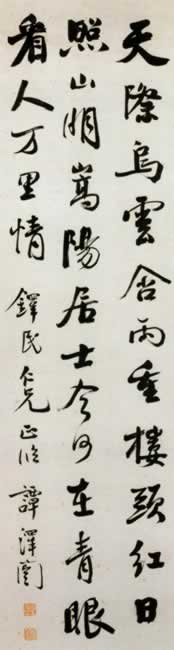 天際烏雲含雨重樓頭紅日
照山明嵩陽居士今何在青眼
看人万里情 鐸民仁兄正臨 譚澤闓